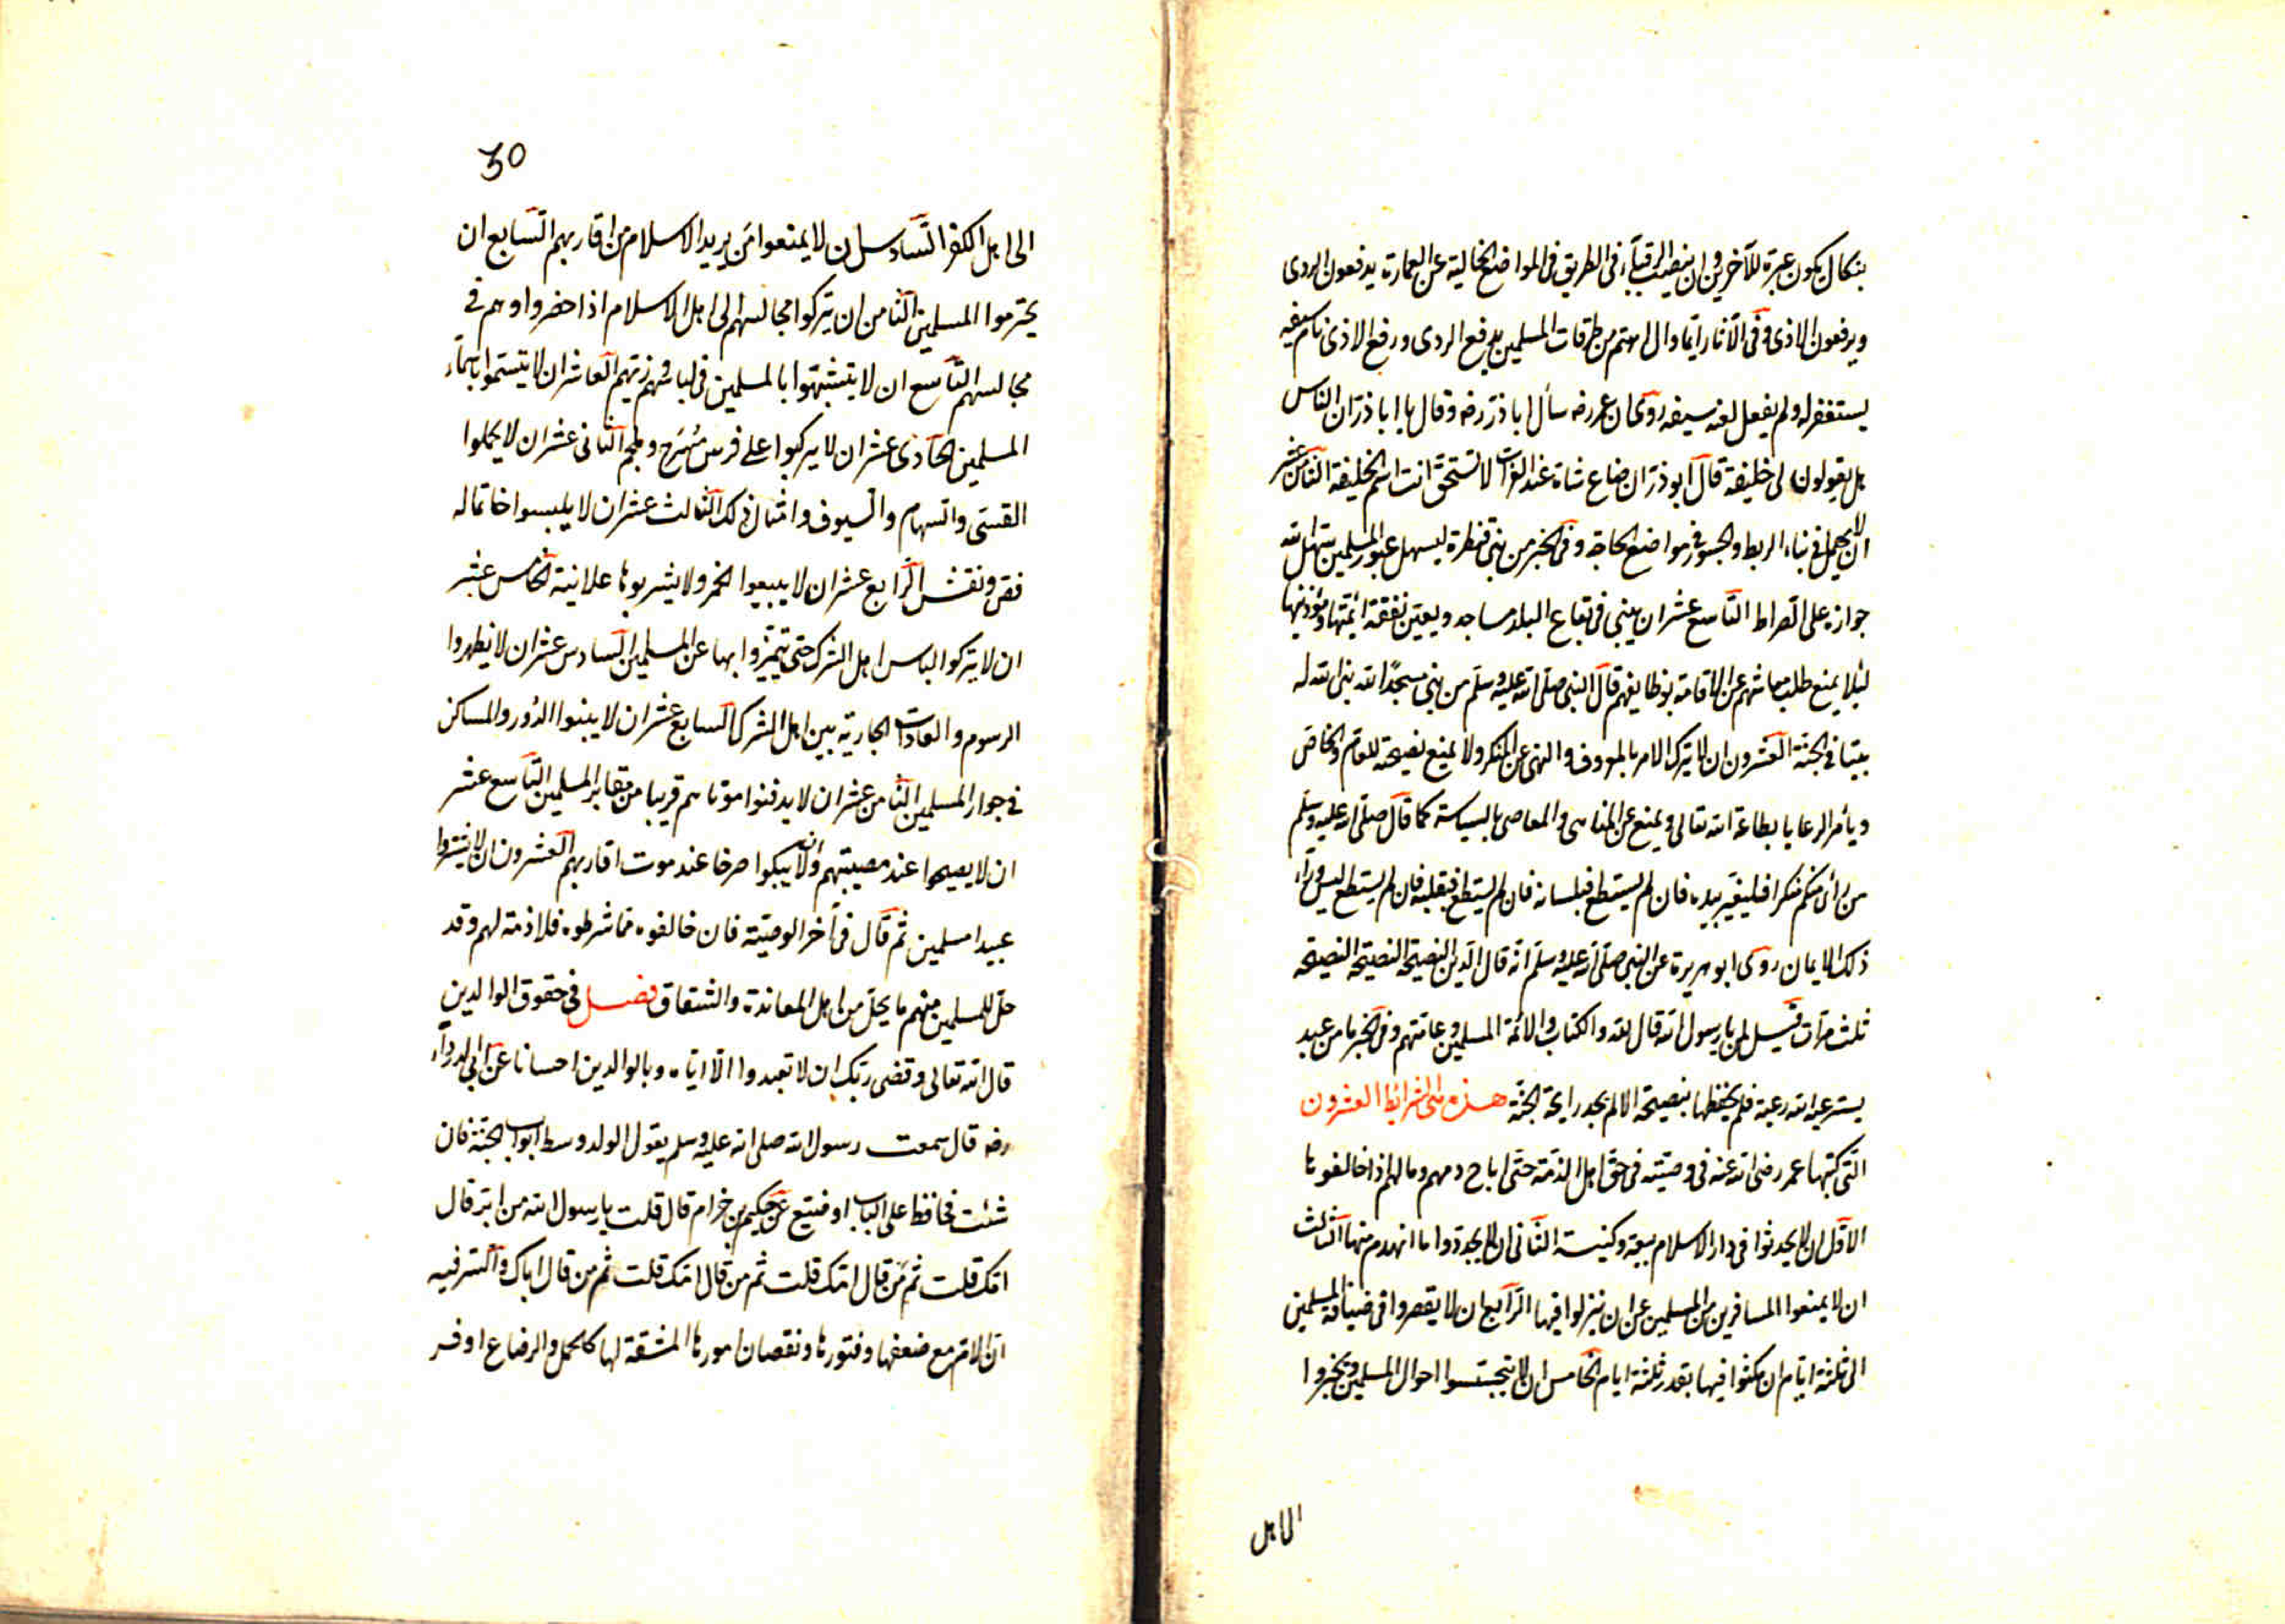 بنكال يكون عبرة للآخرين وان ينصب الرقباء فى الطريق فى المواضع الخالية عن العمارة يدفعون الردى
ويرفعون الاذى وفى الآثار ايما وال لم يهتم من طرقات المسلمين بدفع الردى ورفع الاذى نام سيفه
يستغفر له ولم يفعل لعنه سيفه روى ان عمر رضه سأل اباذر رضه وقال يا اباذر ان الناس
هل يقولون لى خليفة قال ابوذر ان ضاع شاة عند الفرات لا تستحق انت اسم الخليفة الثامن عشر
ان لا يهمل فى بناء الربط والجسور فى مواضع الحاجة وفى الخبر من بنى قنطرة ليسهل عبور المسلمين سهل الله
جوازه على الصراط التاسع عشر ان يبنى فى بقاع البلد مساجد ويعين نفقة ائمتها ومؤذنيها
لئلا يمنع طلب معاشهم عن الاقامة بوظايفهم قال النبى صلى الله عليه وسلم من بنى مسجدًا لله بنى الله له
بيتا فى الجنة العشرون ان لا يترك الامر بالمعروف والنهى عن المنكر ولا يمنع نصيحة للعام والخاص
ويأمر الرعايا بطاعة الله تعالى ويمنع عن المناهى والمعاصى بالسياسة كما قال صلى الله عليه وسلم
من رأى منكم منكرا فليغير بيده فان لم يستطع فبلسانه فان لم يستطع فبقلبه فان لم يستطع ليس وراء
ذلك الايمان روى ابو هريرة عن النبى صلى الله عليه وسلم انه قال الدين النصيحة النصيحة النصيحة
ثلث مرات قيل لمن يا رسول الله قال لله والكتاب ولائمة المسلمين وعامتهم وفى الخبر ما من عبد
يسترعيه الله رعية فلم يحفظها بنصيحة الا لم يجد رايحة الجنة هذه هى الشرائط العشرون
التى كتبها عمر رضى الله عنه فى وصيته فى حق اهل الذمة حتى اباح دمهم ومالهم اذا خالفوها
الاول ان لا يحدثوا فى دار الاسلام بيعة وكنيسة الثانى ان لا يجددوا ما انهدم منها الثالث
ان لا يمنعوا المسافرين من المسلمين عن ان ينزلوا فيها الرابع ان لا يقصروا فى ضيافة المسلمين
الى ثلثة ايام ان مكثوا فيها بقدر ثلثة ايام الخامس ان لا يتجسسوا احوال المسلمين ويخبروا
الى اهل
30
الى اهل الكفر السادس ان لا يمنعوا من يريد الاسلام من اقاربهم السابع ان
يحترموا المسلمين الثامن ان يتركوا مجالسهم الى اهل الاسلام اذا حضروا وهم فى
مجالسهم التاسع ان لا يتشبهوا بالمسلمين فى لباسهم وزيهم العاشر ان لا يتسموا باسماء
المسلمين الحادى عشر ان لا يركبوا على فرس مسرج وملجم الثانى عشر ان لا يحملوا
القسى والسهام والسيوف وامثال ذلك الثالث عشر ان لا يلبسوا خاتما له
فص ونقش الرابع عشر ان لا يبيعوا الخمر ولا يشربوها علانية الخامس عشر
ان لا يتركوا لباس اهل الشرك حتى يتميزوا بها عن المسلمين السادس عشر ان لا يظهروا
الرسوم والعادات الجارية بين اهل الشرك السابع عشر ان لا يبنوا الدور والمساكن
فى جوار المسلمين الثامن عشر ان لا يدفنوا موتاهم قريبا من مقابر المسلمين التاسع عشر
ان لا يصيحوا عند مصيبتهم وان لا يبكوا صرخا عند موت اقاربهم العشرون ان لا يشتروا
عبيدا مسلمين ثم قال فى آخر الوصية فان خالفوه مما شرطوه فلا ذمة لهم وقد
حل للمسلمين منهم ما يحل من اهل المعاندة والشقاق فصل فى حقوق الوالدين
قال الله تعالى وقضى ربك ان لا تعبدوا الا اياه وبالوالدين احسانا عن ابى الدرداء
رضه قال سمعت رسول الله صلى الله عليه وسلم يقول الولد وسط ابواب الجنة فان
شئت فحافظ على الباب او ضيع عن حكيم بن حزام قال قلت يا رسول الله من ابر قال
امك قلت ثم من قال امك قلت ثم من قال امك قلت ثم من قال اباك والسر فيه
ان الام مع ضعفها وفتورها ونقصان امورها المشقة لها كالحمل والرضاع اوفر